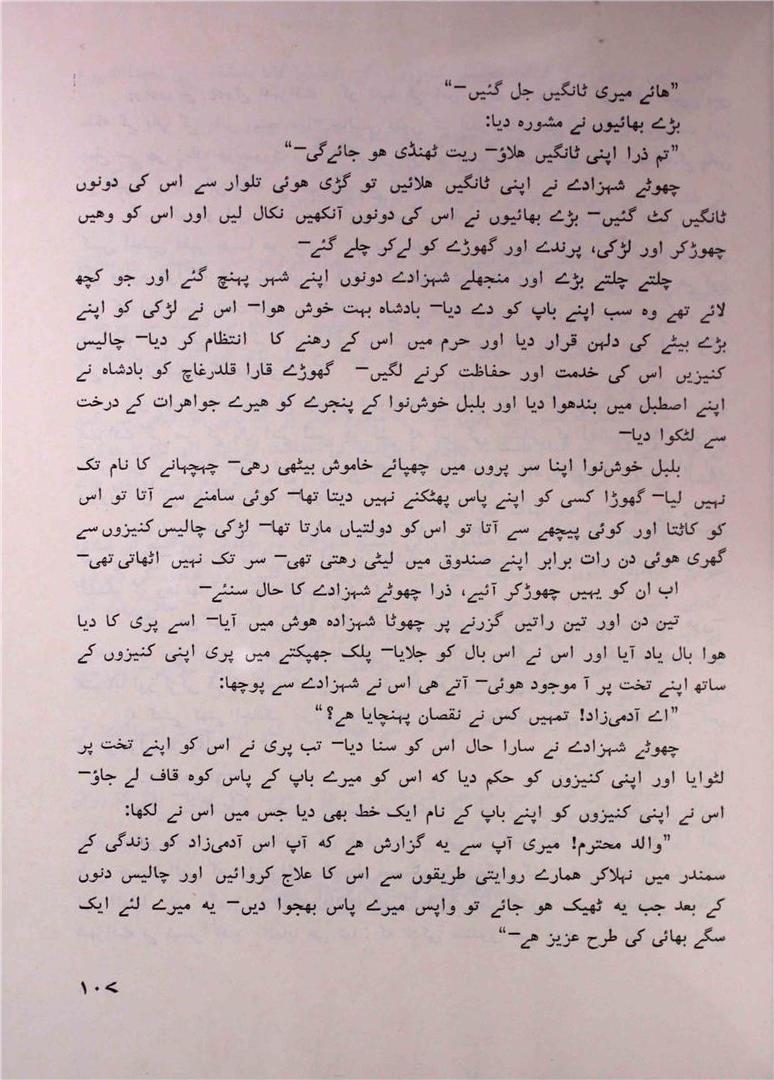 ”ھائے میری ٹانگیں جل گئیں—“
بڑے بھائیوں نے مشورہ دیا:
”تم ذرا اپنی ٹانگیں ھلاؤ— ریت ٹھنڈی ھو جائےگی—“
چھوٹے شہزادے نے اپنی ٹانگیں ھلائیں تو گڑی ھوئی تلوار سے اس کی دونوں
ٹانگیں کٹ گئیں— بڑے بھائیوں نے اس کی دونوں آنکھیں نکال لیں اور اس کو وھیں
چھوڑکر اور لڑکی، پرندے اور گھوڑے کو لےکر چلے گئے—
چلتے چلتے بڑے اور منجھلے شہزادے دونوں اپنے شہر پہنچ گئے اور جو کچھ
لائے تھے وہ سب اپنے باپ کو دے دیا— بادشاہ بہت خوش ھوا— اس نے لڑکی کو اپنے
بڑے بیٹے کی دلہن قرار دیا اور حرم میں اس کے رھنے کا انتظام کر دیا— چالیس
کنیزیں اس کی خدمت اور حفاظت کرنے لگیں— گھوڑے قارا قلدرغاچ کو بادشاہ نے
اپنے اصطبل میں بندھوا دیا اور بلبل خوش‌نوا کے پنجرے کو ھیرے جواھرات کے درخت
سے لٹکوا دیا—
بلبل خوش‌نوا اپنا سر پروں میں چھپائے خاموش بیٹھی رھی— چہچہانے کا نام تک
نہیں لیا— گھوڑا کسی کو اپنے پاس پھٹکنے نہیں دیتا تھا— کوئی سامنے سے آتا تو اس
کو کاٹتا اور کوئی پیچھے سے آتا تو اس‌کو دولتیاں مارتا تھا— لڑکی چالیس کنیزوں‌سے
گھری ھوئی دن رات برابر اپنے صندوق میں لیٹی رھتی تھی— سر تک نہیں اٹھاتی‌تھی—
اب ان کو یہیں چھوڑکر آئیے، ذرا چھوٹے شہزادے کا حال سنئے—
تین دن اور تین راتیں گزرنے پر چھوٹا شہزادہ ھوش میں آیا— اسے پری کا دیا
ھوا بال یاد آیا اور اس نے اس بال کو جلایا— پلک جھپکتے میں پری اپنی کنیزوں کے
ساتھ اپنے تخت پر آ موجود ھوئی— آتے ھی اس نے شہزادے سے پوچھا:
”اے آدمی‌زاد! تمہیں کس نے نقصان پہنچایا ھے؟“
چھوٹے شہزادے نے سارا حال اس کو سنا دیا— تب پری نے اس کو اپنے تخت پر
لٹوایا اور اپنی کنیزوں کو حکم دیا که اس کو میرے باپ کے پاس کوہ قاف لے جاؤ—
اس نے اپنی کنیزوں کو اپنے باپ کے نام ایک خط بھی دیا جس میں اس نے لکھا:
”والد محترم! میری آپ سے یه گزارش ھے که آپ اس آدمی‌زاد کو زندگی کے
سمندر میں نہلاکر ھمارے روایتی طریقوں سے اس کا علاج کروائیں اور چالیس دنوں
کے بعد جب یه ٹھیک ھو جائے تو واپس میرے پاس بھجوا دیں— یه میرے لئے ایک
سگے بھائی کی طرح عزیز ھے—“
۱۰۷